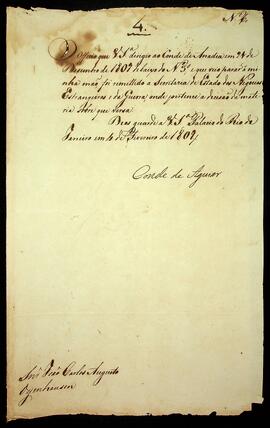 4.
O Officio que V. Sª dirigio ao Conde de Anadia em 24 de
Dezembro de 1807 debaixo do Nº 3º e que veio parar á mi
nha mão foi remettido á Secretaria de Estado dos Negocios
Estrangeiros e da Guerra, onde pertence a decisão da mate
ria sobre que versa.
Deos guarde a V. Sª Palacio do Rio de
Janeiro em de Fevereiro de 1809
Conde de Aguiar
Snr João Carlos Augusto
Oyenhausen